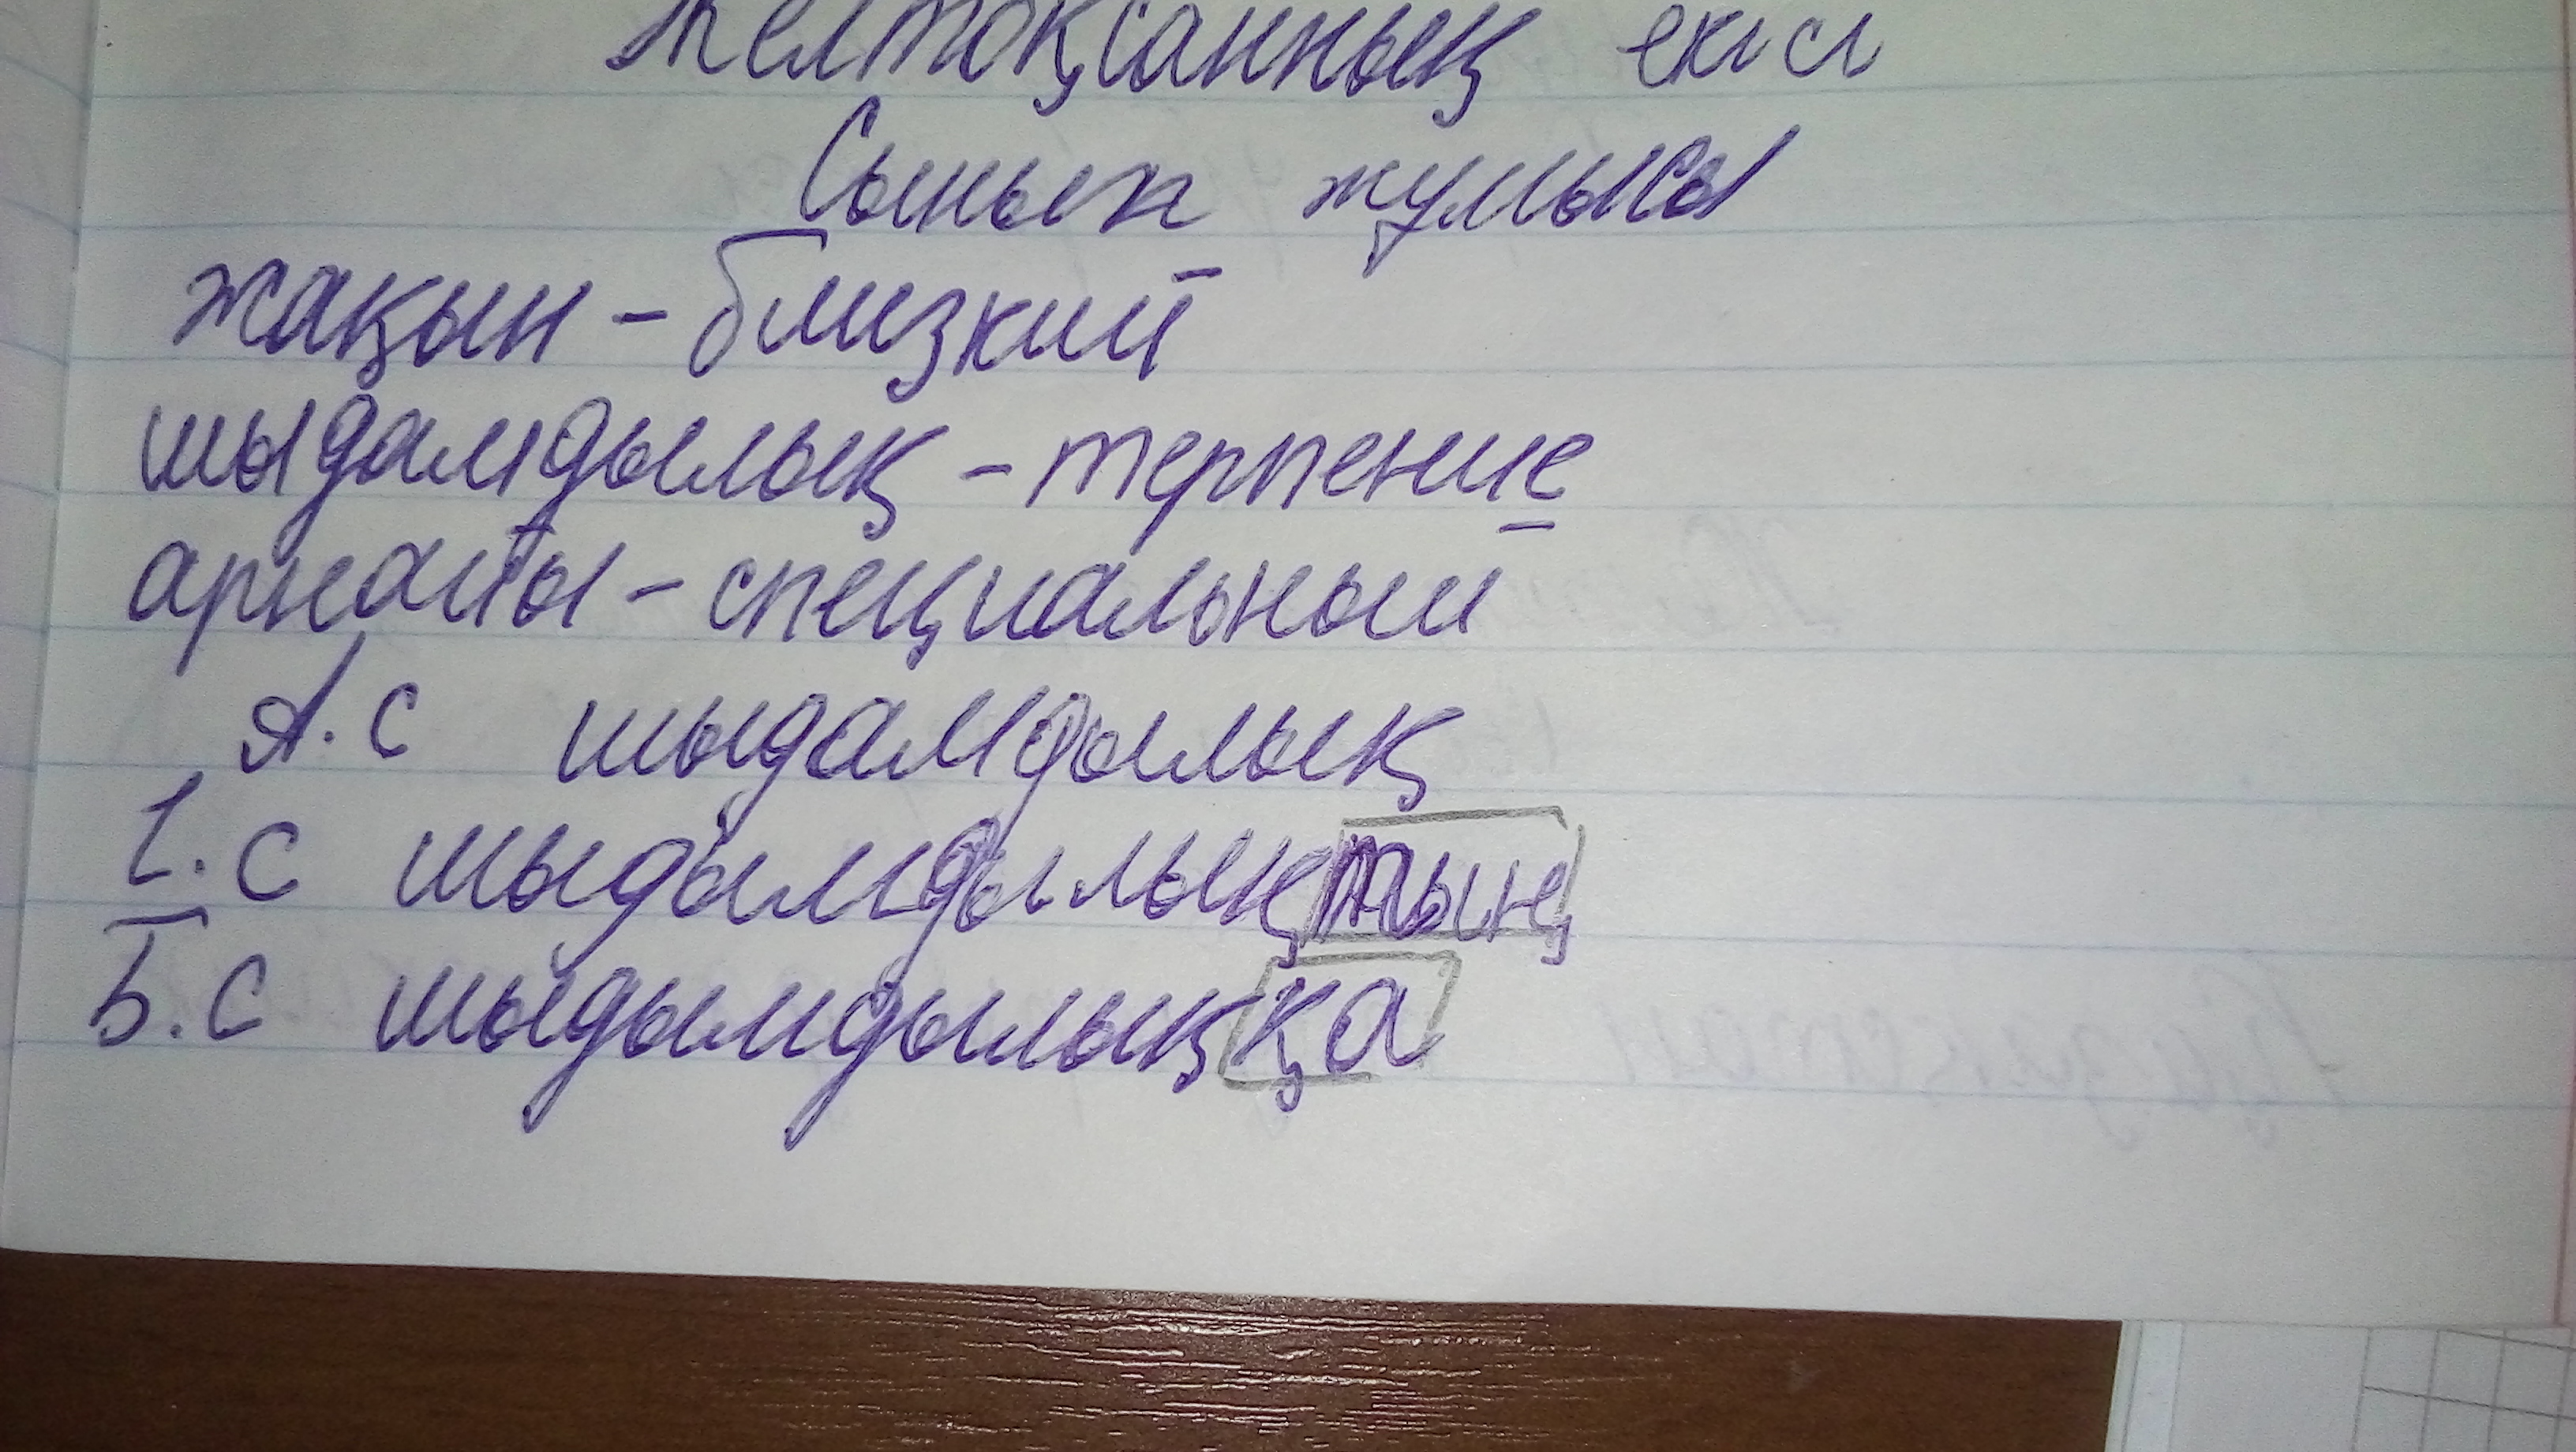 Желтоқсанның екісі
Сынып жұмысы
жақын - близкий
шыдамдылық - терпение
арнайы - специальный
А. с шыдамдылық
І. с шыдамдылықтың
Б. с шыдымдылыққа